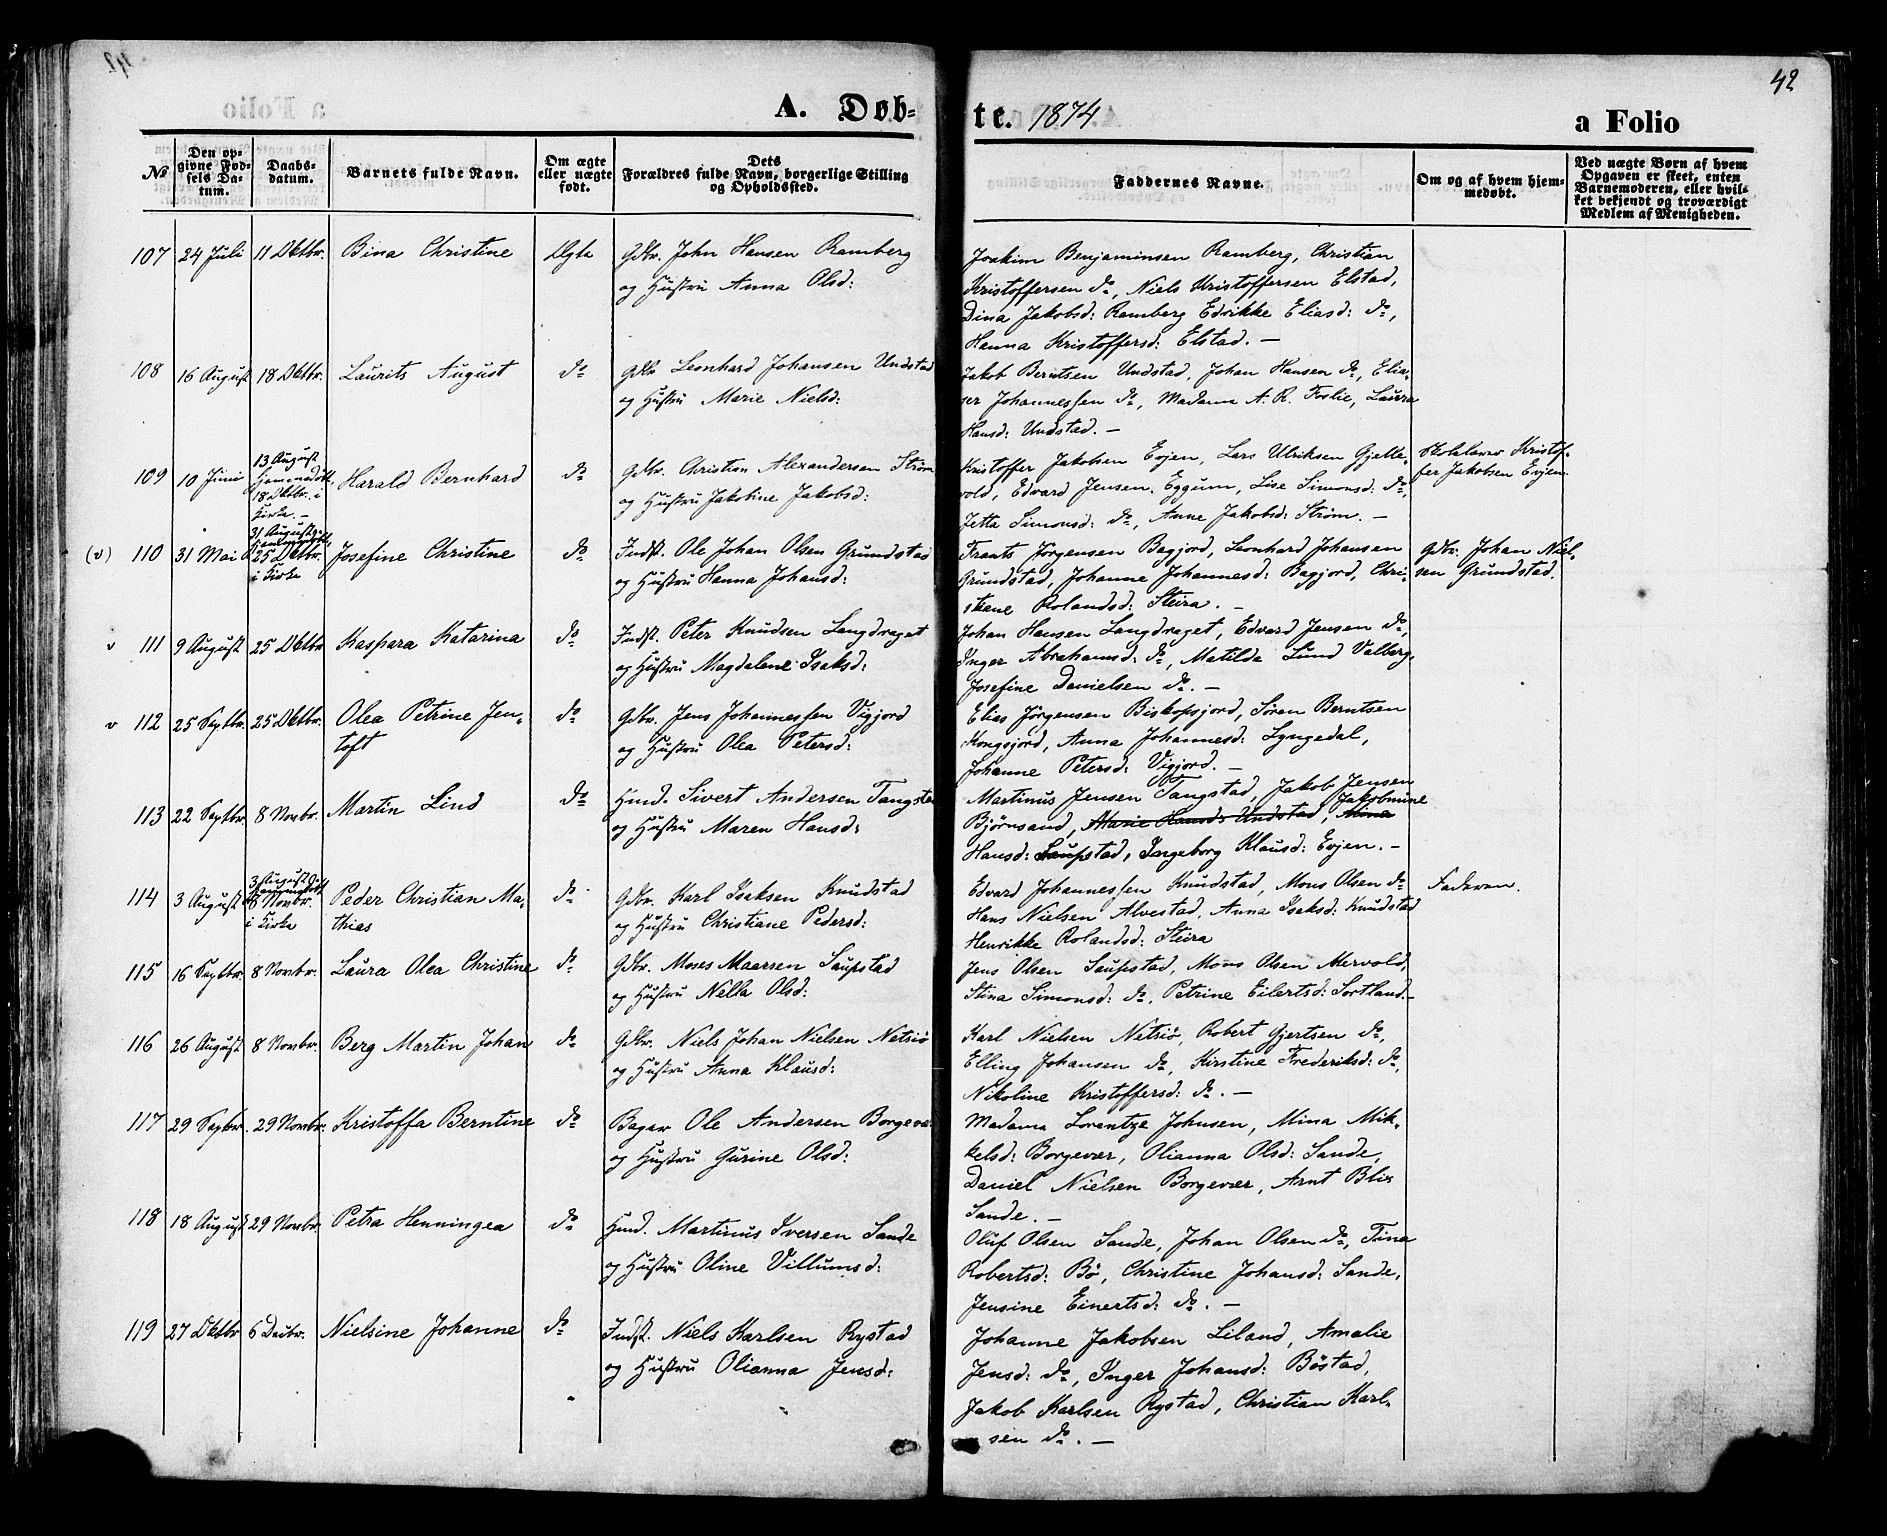 42
A. Døb-
te. 1874
a Folio
№
Den op-
givne Fød-
sels Da-
tum.
Daabs-
datum.
Barnets fulde Navn.
Om ægte
eller uægte
født.
Dets
Forældres fulde Navn, borgerlige Stilling
og Opholdssted.
Faddernes Navne.
Om og af hvem hjem-
medøbt.
Ved uægte Børn af hvem
Opgaven er skeet, enten
Barnemoderen, eller hvil-
ket bekjendt og troværdigt
Medlem af Menigheden.
107 24 Juli 11 Oktbr. Bina Christine Ægte Gdbr. John Hansen Ramberg
og Hustru Anna Olsd:
Joakim Benjaminsen Ramberg, Christian
Kristoffersen do, Niels Kristoffersen Elstad,
Dina Jakobsd: Ramberg Edrikke Eliasd: do,
Hanna Kristoffersd: Elstad. —
108 16 August 18 Oktbr. Laurits August do Gdbr Leonhard Johansen Undstad
og Hustru Marie Nielsd:
Jakob Berntsen Undstad, Johan Hansen do, Elia-
ser Johannessen do, Madama A. R. Foslie, Laura
Hansd: Undstad. —
109 10 Juni 13 August
Hjemmedøbt
18 Oktbr. i
Kirke. —
Harald Bernhard do Gdbr. Christian Alexandersen Strøm
og Hustru Jakobine Jakobsd:
Kristoffer Jakobsen Evjen, Lars Ulriksen Gjelle-
vold, Edvard Jensen Eggum, Lise Simonsd: do,
Jetta Simonsd: do, Anne Jakobsd: Strøm. —
Skolelærer Kristof-
fer Jakobsen Evjen
(v) 110 31 Mai 31 August
Hjemmedøbt,
25 Oktbr.
i Kirke
Josefine Christine do Indst. Ole Johan Olsen Grundstad
og Hustru Hanna Johansd:
Frants Jørgensen Bagjord, Leonhard Johansen
Grundstad, Johanne Johannesd: Bagjord, Chri-
stiane Rolandsd: Steira. —
Gdbr. Johan Niel-
sen Grundstad.
v 111 9 August 25 Oktbr Kaspara Katarina do Indst. Peter Knudsen Langdraget
og Hustru Magdalene Isaksd:
Johan Hansen Langdraget, Edvard Jensen do,
Inger Abrahamsd: do, Matilda Lund Valberg,
Josefine Danielsen do. —
v 112 25 Septbr. 25 Oktbr. Olea Petrine Jen-
toft
do Gdbr. Jens Johannessen Vigjord
og Hustru Olea Petersd:
Elias Jørgensen Biskopsjord, Søren Berntsen
Kongsjord, Anna Johannesd: Lyngedal,
Johanne Petersd: Vigjord. —
113 22 Septbr. 8 Novbr. Martin Lind do Hmd. Sivert Andersen Tangstad
og Hustru Maren Hansd:
Martinus Jensen Tangstad, Jakob Jensen
Jakobmine
Bjørnsand, Marie Hansd: Undstad, Mina
Hansd: Saupstad, Ingeborg Klausd: Evjen. —
114 3 August 3 August
Hjemmedøbt
8 Novbr.
i Kirke
Peder Christian Ma-
thias
do Gdbr. Karl Isaksen Knudstad
og Hustru Christiane Pedersd:
Edvard Johannessen Knudstad, Mons Olsen do
Hans Nielsen Alvestad, Anna Isaksd: Knudstad
Henrikke Rolandsd: Steira
Faderen.
115 16 Septbr. 8 Novbr. Laura Olea Christine do Gdbr. Moses Maarsen Saupstad
og Hustru Nella Olsd:
Jens Olsen Saupstad, Mons Olsen Mervold,
Stina Simonsd: do, Petrine Eilertsd: Sortland. —
116 26 August 8 Novbr. Berg Martin Johan do Gdbr. Niels Johan Nielsen Netsiø
og Hustru Anna Klausd:
Karl Nielsen Netsiø, Robert Gjertsen do,
Elling Johansen do, Kirstine Frederiksd: do,
Nikoline Kristoffersd: do. —
117 29 Septbr. 29 Novbr. Kristoffa Berntine do Bager Ole Andersen Borgevær
og Hustru Gurine Olsd:
Madama Lorentze Johnsen, Mina Mik-
kelsd: Borgevær, Olianna Olsd: Sande,
Daniel Nielsen Borgevær, Arnt Blix
Sande. —
118 18 August 29 Novbr. Petra Henningea do Hmd. Martinus Iversen Sande
og Hustru Oline Villumsd:
Oluf Olsen Sande, Johan Olsen do, Tina
Robertsd: Bø, Christine Johansd: Sande,
Jensine Einertsd: do. —
119 27 Oktbr 6 Decbr. Nielsine Johanne do Indst. Niels Karlsen Rystad
og Hustru Olianna Jensd:
Johanne Jakobsen Liland, Amalie
Jensd: do, Inger Johansd: Bøstad,
Jakob Karlsen Rystad, Christian Karl-
sen do. —